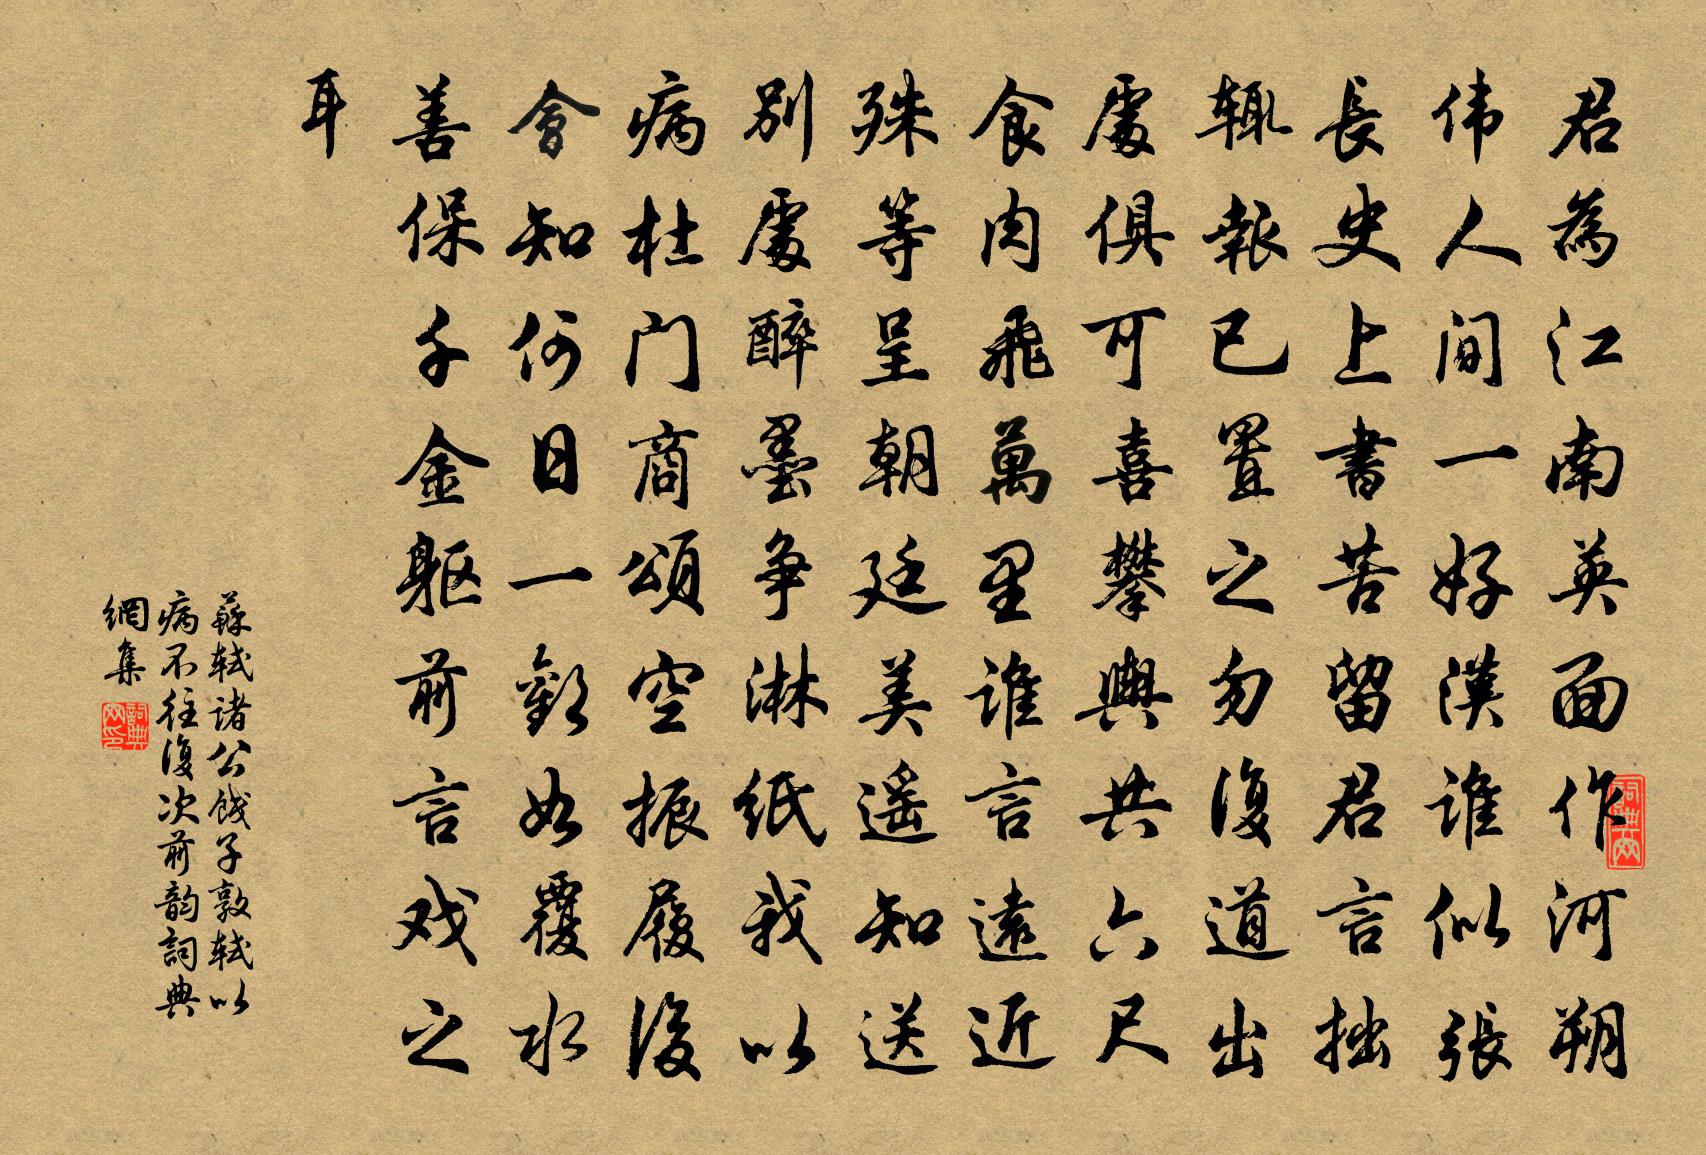 君為江南英面作河朔
伟人间一好漢谁似張
長史上書苦留君言拙
輒報已置之勿復道出
處俱可喜攀輿共六尺
食肉飛萬里谁言遠近
殊等呈朝廷美遥知送
别處醉墨争淋纸我以
病杜门商頌空振履後
會知何日一歡如覆水
善保千金躯前言戏之
耳
蘇轼诸公餞子敦轼以
病不往復次前韵詞典
網集
詞典网
詞典网印